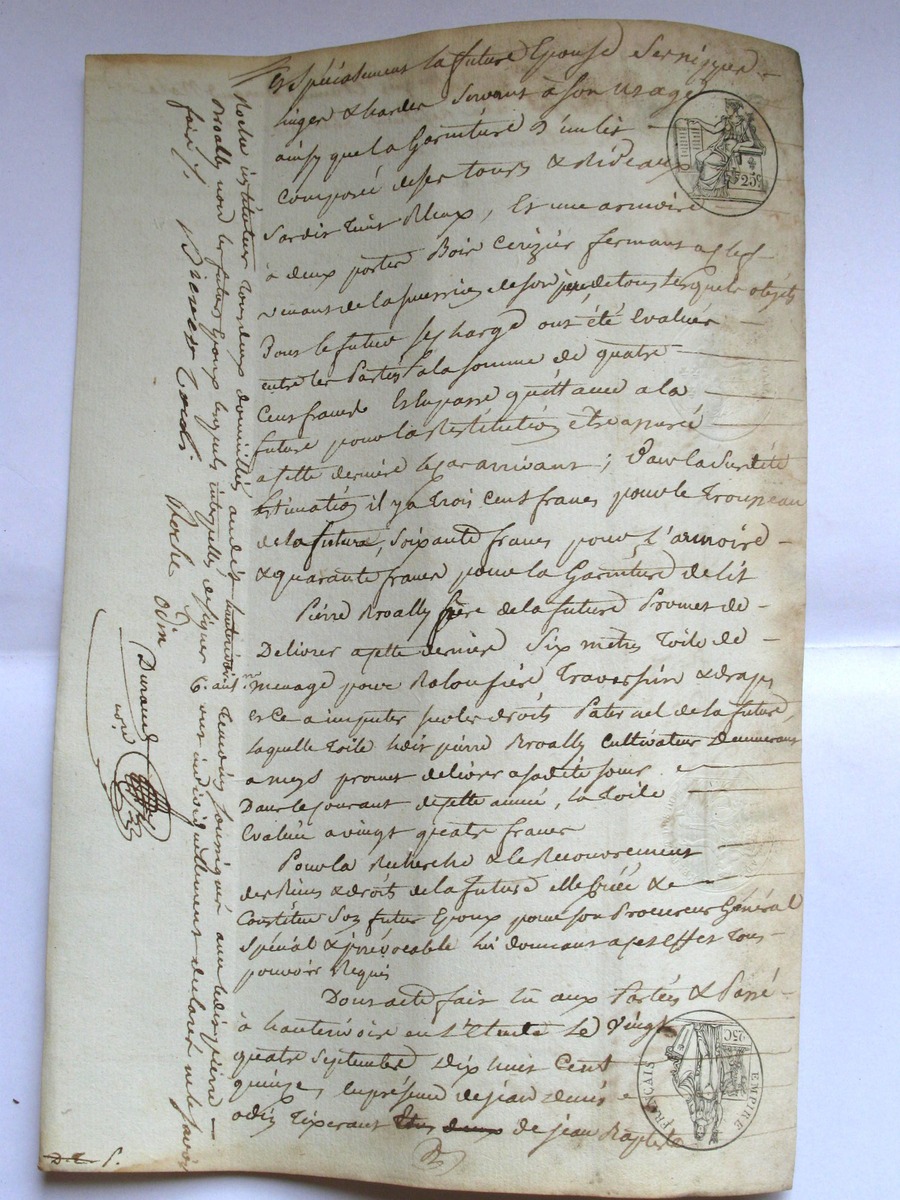 Et spécialement la future Epouse ses nippes
linges & hardes servant à son usage
ainsy que la Garniture d'un lit
composée de ses tours & Rideaux
Sardis bleux, Et une armoire
à deux portes Bois Cerizier fermant a clef
venant de la de son père de tous lesquels objets
Dont le futur se charge ont été évalués
entre les Parties à la somme de quatre
Cent francs Et en passe quittance a la
future pour la Restitution être assurée
a cette dernière le cas arrivant ; Dans la susdite
Estimation il y a trois cent francs pour le Trousseau
de la future, soixante francs pour l'armoire
& quarante francs pour la Garniture de lit
Pierre Broally frère de la future Promet de
Delivrer a cette dernière Six mètres Toile de
menage pour traversin & draps
et ce a imputer sur les droits Paternel de la future
laquelle Toile ledit pierre Broally Cultivateur Demeurant
a meys promet delivrer a sa dite sœur
Dans le courant de cette année, la Toile
Evaluée a vingt quatre francs
Pour la Recherche & le Recouvrement
des Biens & droits de la future elle Créé &
Constitue son futur Epoux pour son Procureur Général
Spécial & irrévocable lui donnant a cet effet tous
pouvoirs Requis
Dont acte fait lu aux Parties & Passé
à hauterivoire en l'Etude Le Vingt
quatre Septembre Dix huit Cent
quinze, en présence de jean denis
odin Tixerant Tous deux de jean Baptiste
Roche instituteur Tous deux domiciliés audit hauterivoire Temoins soussignés avec ledit pierre
Broally non les futurs Epoux lesquels interpellés de signer & ont individuellement declaré ne le savoir
faire /.
Roche Odin
Durand
nre
6. aus. ne
25C
25C
EMPIRE FRANÇAIS